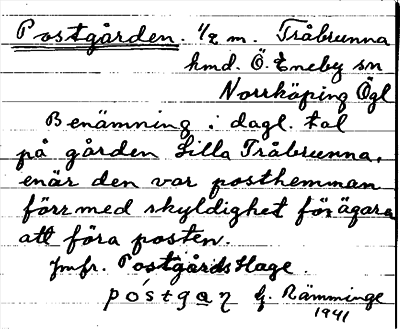 Postgården. 1/2 m. Tråbrunna
hmd. Ö. Eneby sn
Norrköping Ögl
Benämning i dagl. tal
på gården Lilla Tråbrunna,
enär den var posthemman
förr med skyldighet för ägara
att föra posten.
Jmfr. Postgårds Hage.
póstgaṇ G. Rämminge
1941